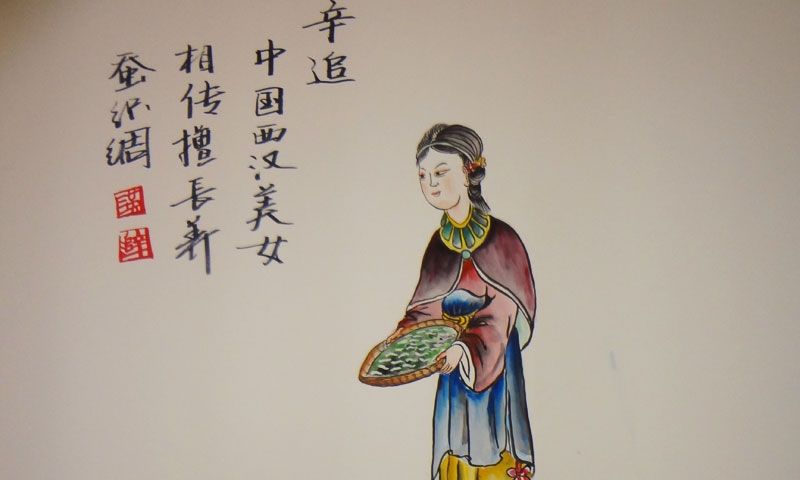 辛追
中国西汉美女
相传擅長养
蚕织绸